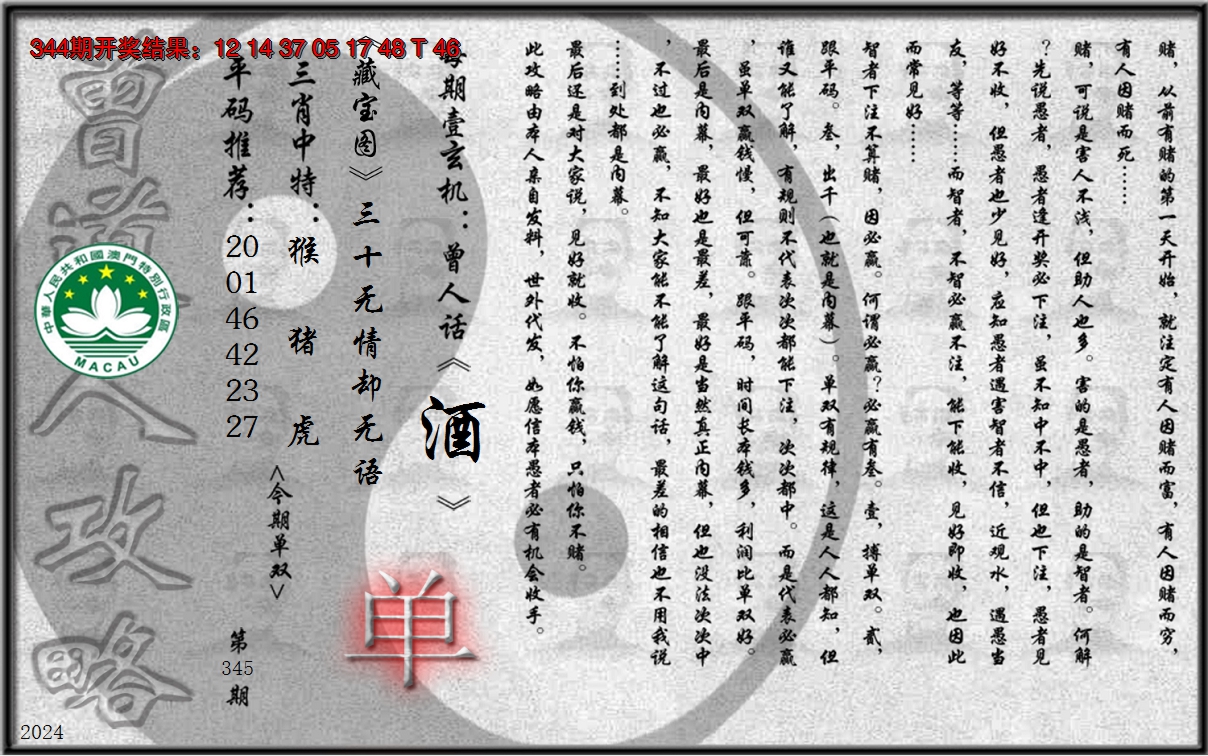 344期开奖结果：12 14 37 05 17 48 T 46
赌，从前有赌的第一天开始，就注定有人因赌而富，有人因赌而穷，
有人因赌而死……
赌，可说是害人不浅，但助人也多。害的是愚者，助的是智者。何解
？先说愚者，愚者逢开奖必下注，虽不知中不中，但也下注，愚者见
好不收，但愚者也少见好，应知愚者遇害智者不信，近观水，遇愚当
友，等等……而智者，不智必赢不注，能下能收，见好即收，也因此
而常见好……
智者下注不算赌，因必赢。何谓必赢？必赢有叁。壹，搏单双。贰，
跟平码。叁，出千（也就是内幕）。单双有规律，这是人人都知，但
谁又能了解，有规则不代表次次都能下注，次次都中。而是代表必赢
，虽单双赢钱慢，但可靠。跟平码，时间长本钱多，利润比单双好。
最后是内幕，最好也是最差，最好是当然真正内幕，但也没法次次中
，不过也必赢，不知大家能不能了解这句话，最差的相信也不用我说
……到处都是内幕。
最后还是对大家说，见好就收。不怕你赢钱，只怕你不赌。
此攻略由本人亲自发料，世外代发，如愿信本愚者必有机会收手。
每期壹玄机：曾人话《酒》
《藏宝图》三十无情却无语
单
三肖中特：猴 猪 虎
<今期单双>
平码推荐：20 01 46 42 23 27
第345期
曾道人攻略
中華人民共和國澳門特別行政區
MACAU
2024